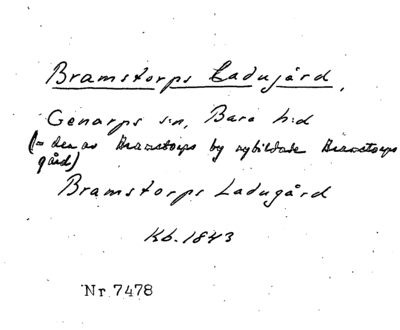 Bramstorps Ladugård,
Genarps s:n, Bara h:d
(= den av Bramstorps by nybildade Bramstorps
gård)
Bramstorps Ladugård
Kb. 1843
Nr 7478